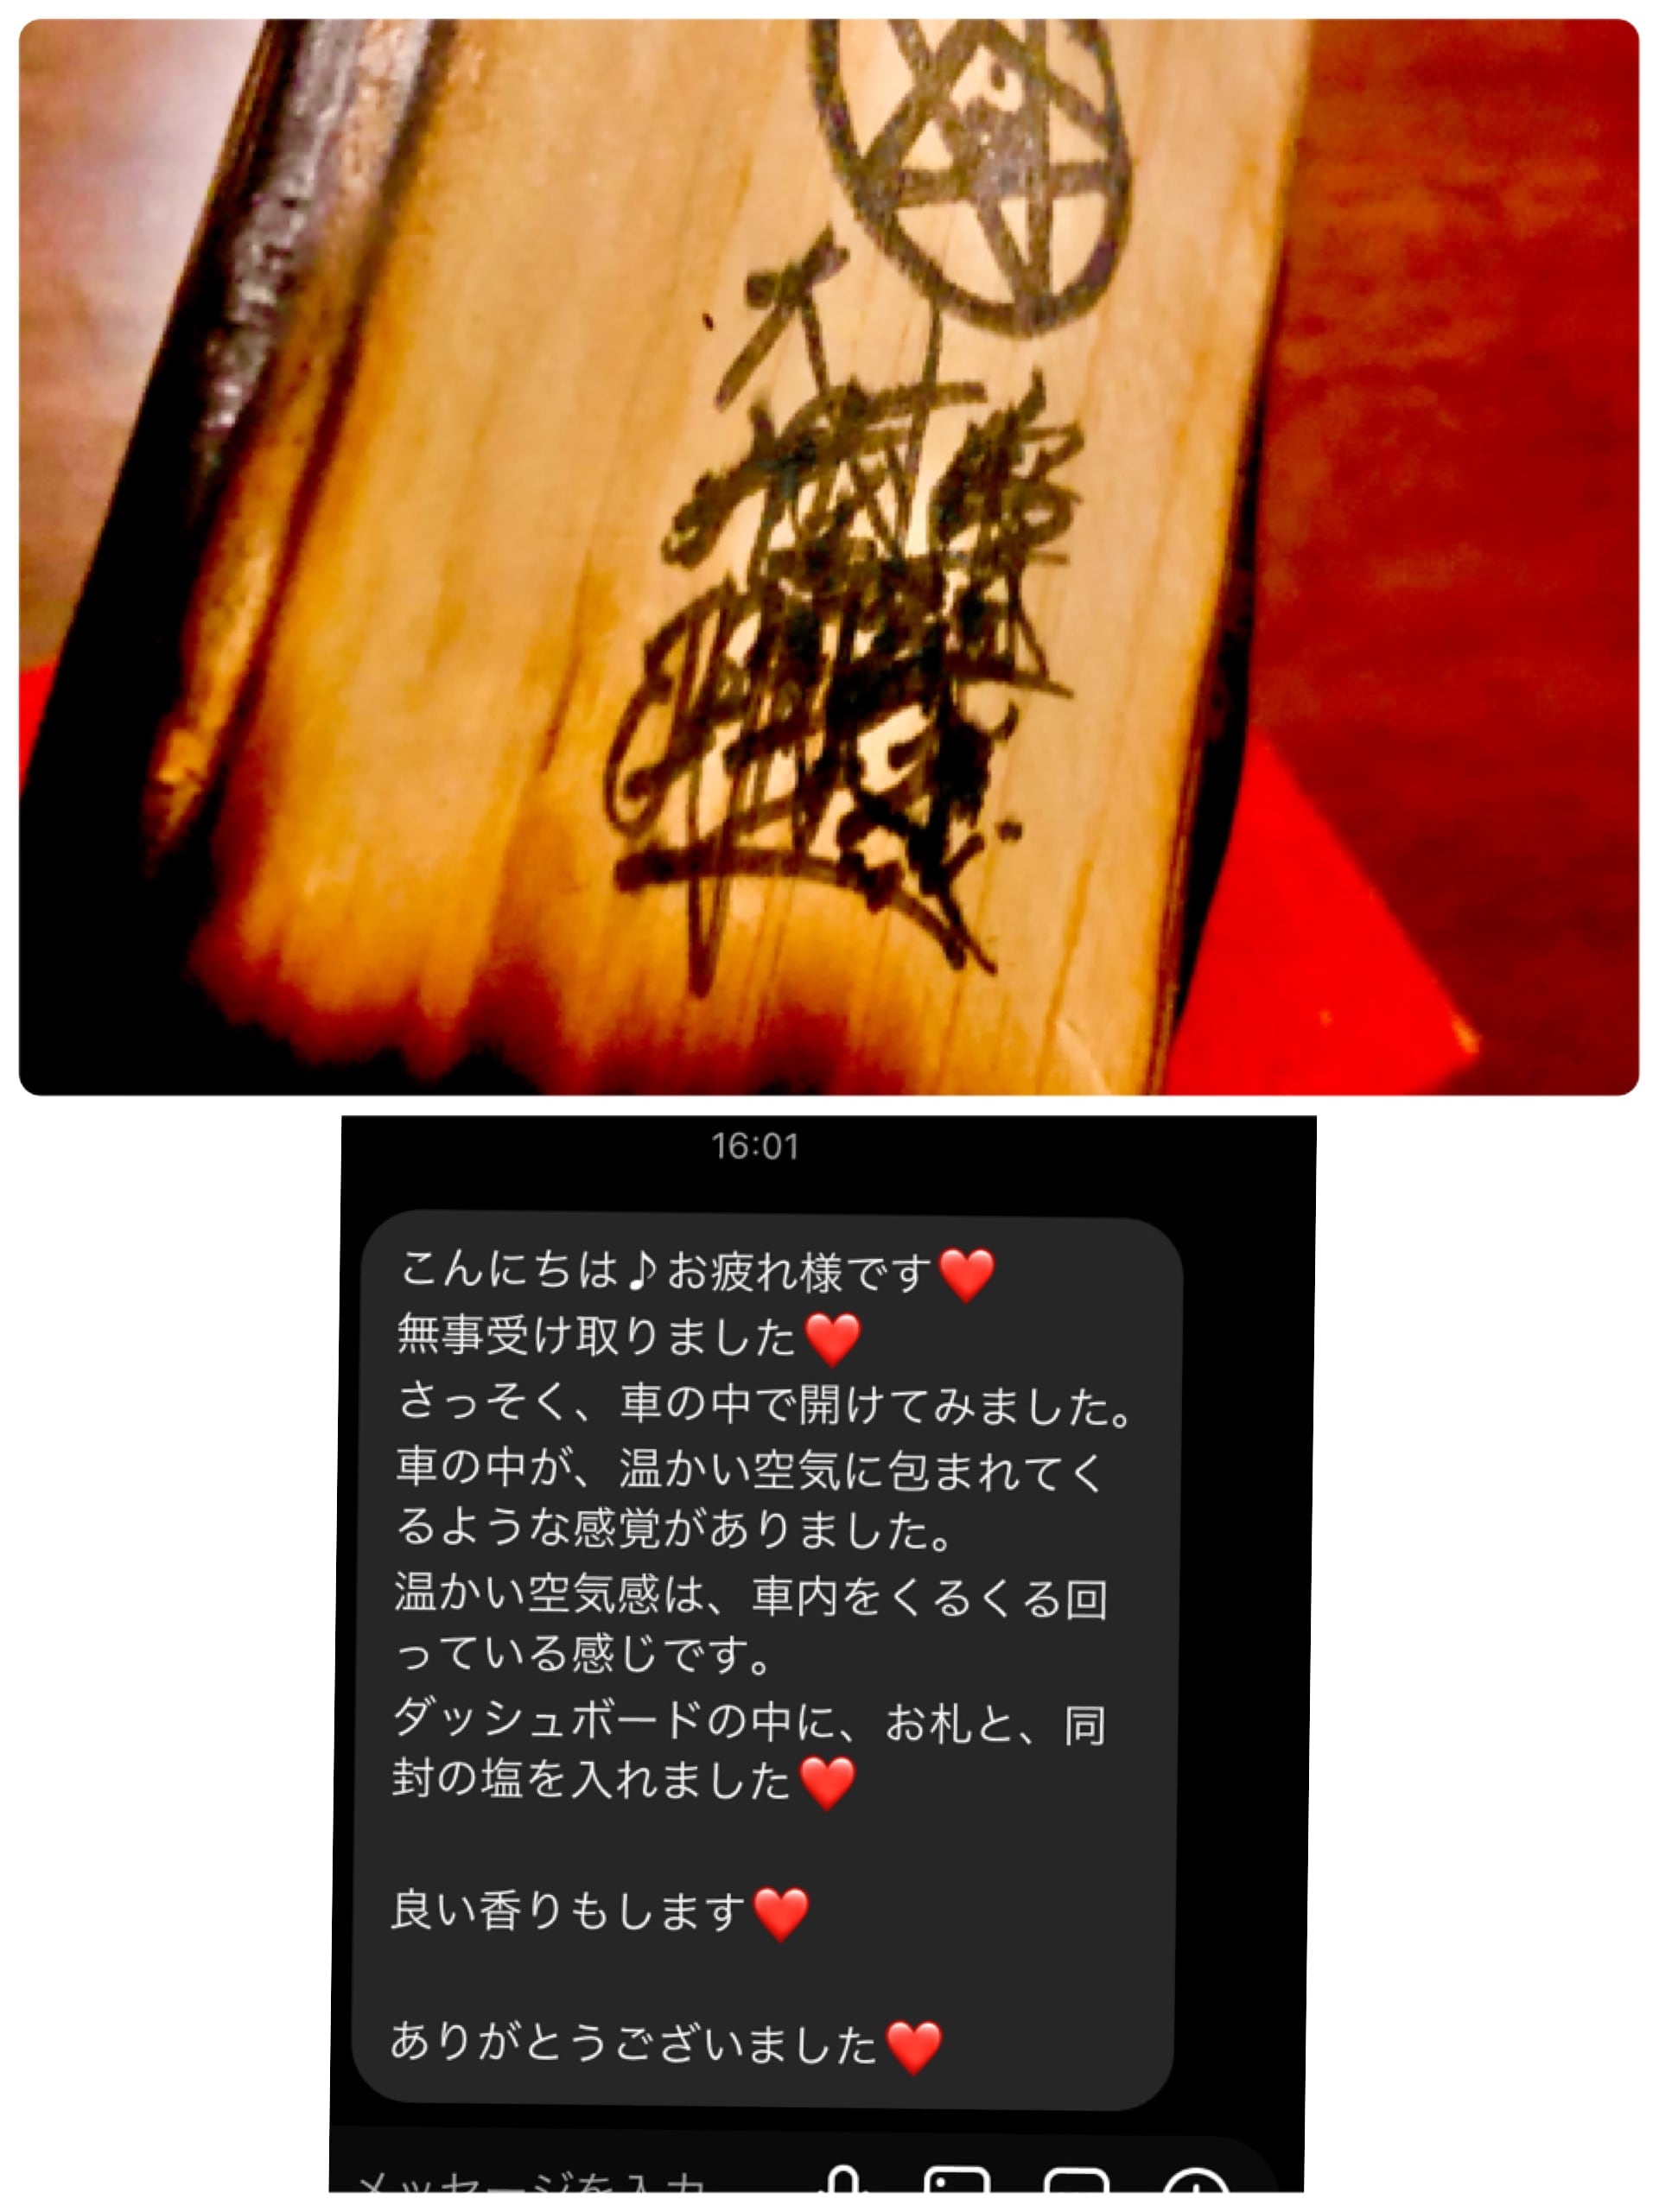 16:01
こんにちは♪お疲れ様です❤️
無事受け取りました❤️
さっそく、車の中で開けてみました。
車の中が、温かい空気に包まれてく
るような感覚がありました。
温かい空気感は、車内をくるくる回
っている感じです。
ダッシュボードの中に、お札と、同
封の塩を入れました❤️
良い香りもします❤️
ありがとうございました❤️
メッセージを入力